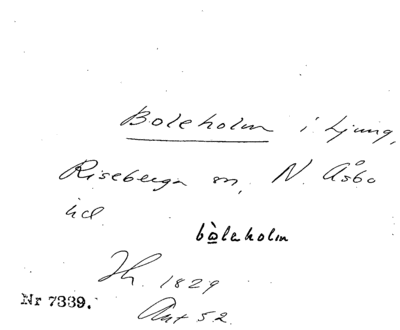 Boleholm i Ljung,
Riseberga sn, N. Åsbo
hd
bòleholm
Jh. 1829
Nr 7339.
Ant 52.